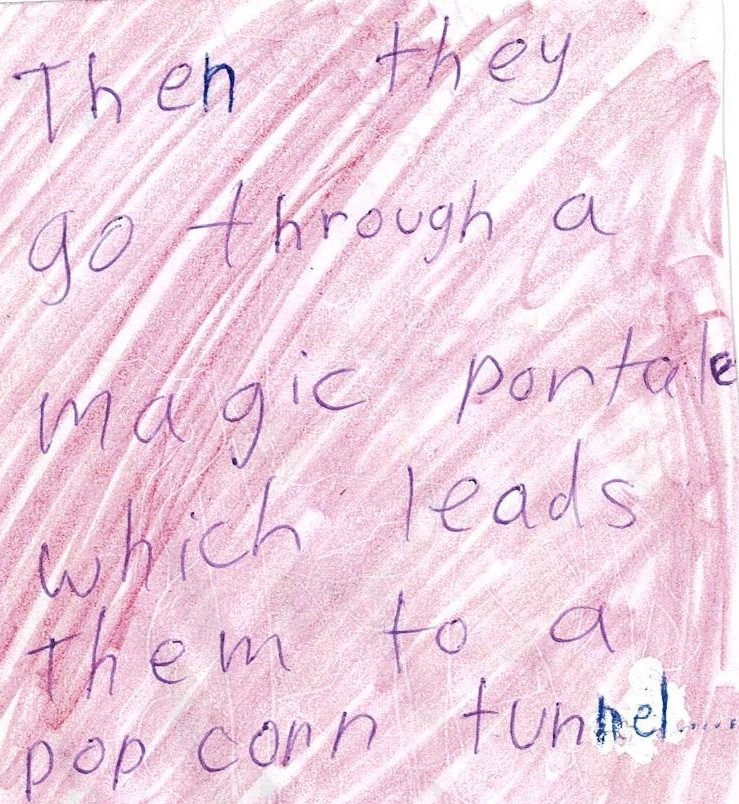 Then they
go through a
magic portale
which leads
them to a
pop corn tunnel......